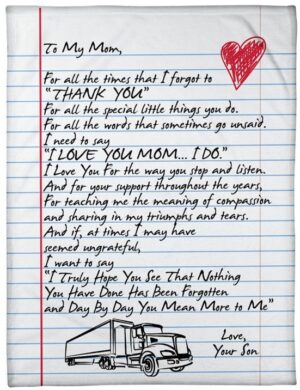 To My Mom,
For all the times that I forgot to
"THANK YOU"
For all the special little things you do.
For all the words that sometimes go unsaid.
I need to say
"I LOVE YOU MOM... I DO."
I Love You For the way you stop and listen.
And for your support throughout the years,
For teaching me the meaning of compassion
and sharing in my triumphs and tears.
And if, at times I may have
seemed ungrateful,
I want to say
"I Truly Hope You See That Nothing
You Have Done Has Been Forgotten
and Day By Day You Mean More to Me"
Love,
Your Son